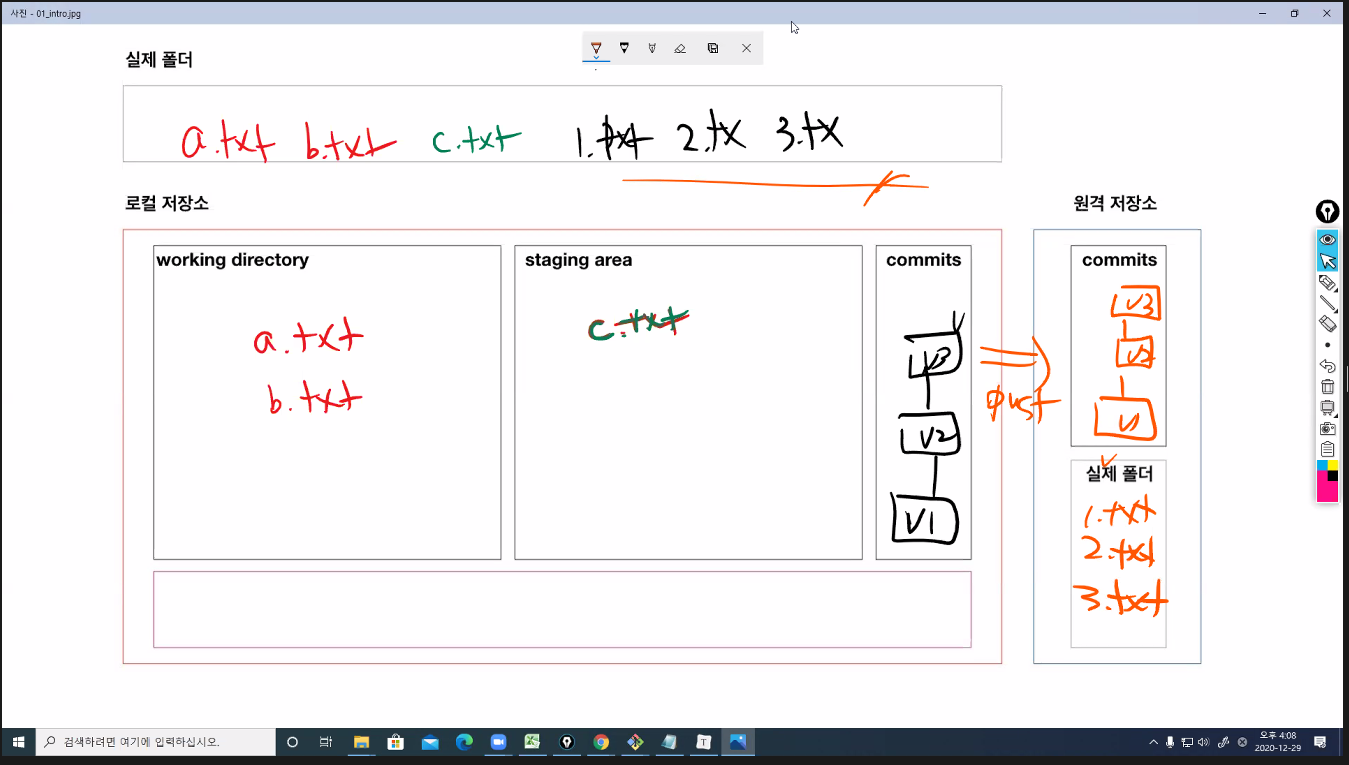 사진 - 01_intro.jpg
실제 폴더
a.txt b.txt c.txt 1.txt 2.tx 3.tx
로컬 저장소
원격 저장소
working directory
a.txt
b.txt
staging area
c.txt
commits
V3
V2
V1
push
commits
V3
V2
V1
실제 폴더
1.txt
2.txt
3.txt
검색하려면 여기에 입력하십시오.
오후 4:08
2020-12-29